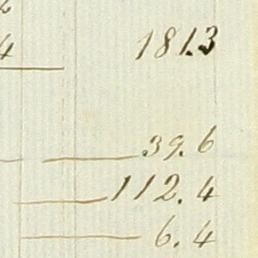 4 181.3
39.6
112.4
6.4